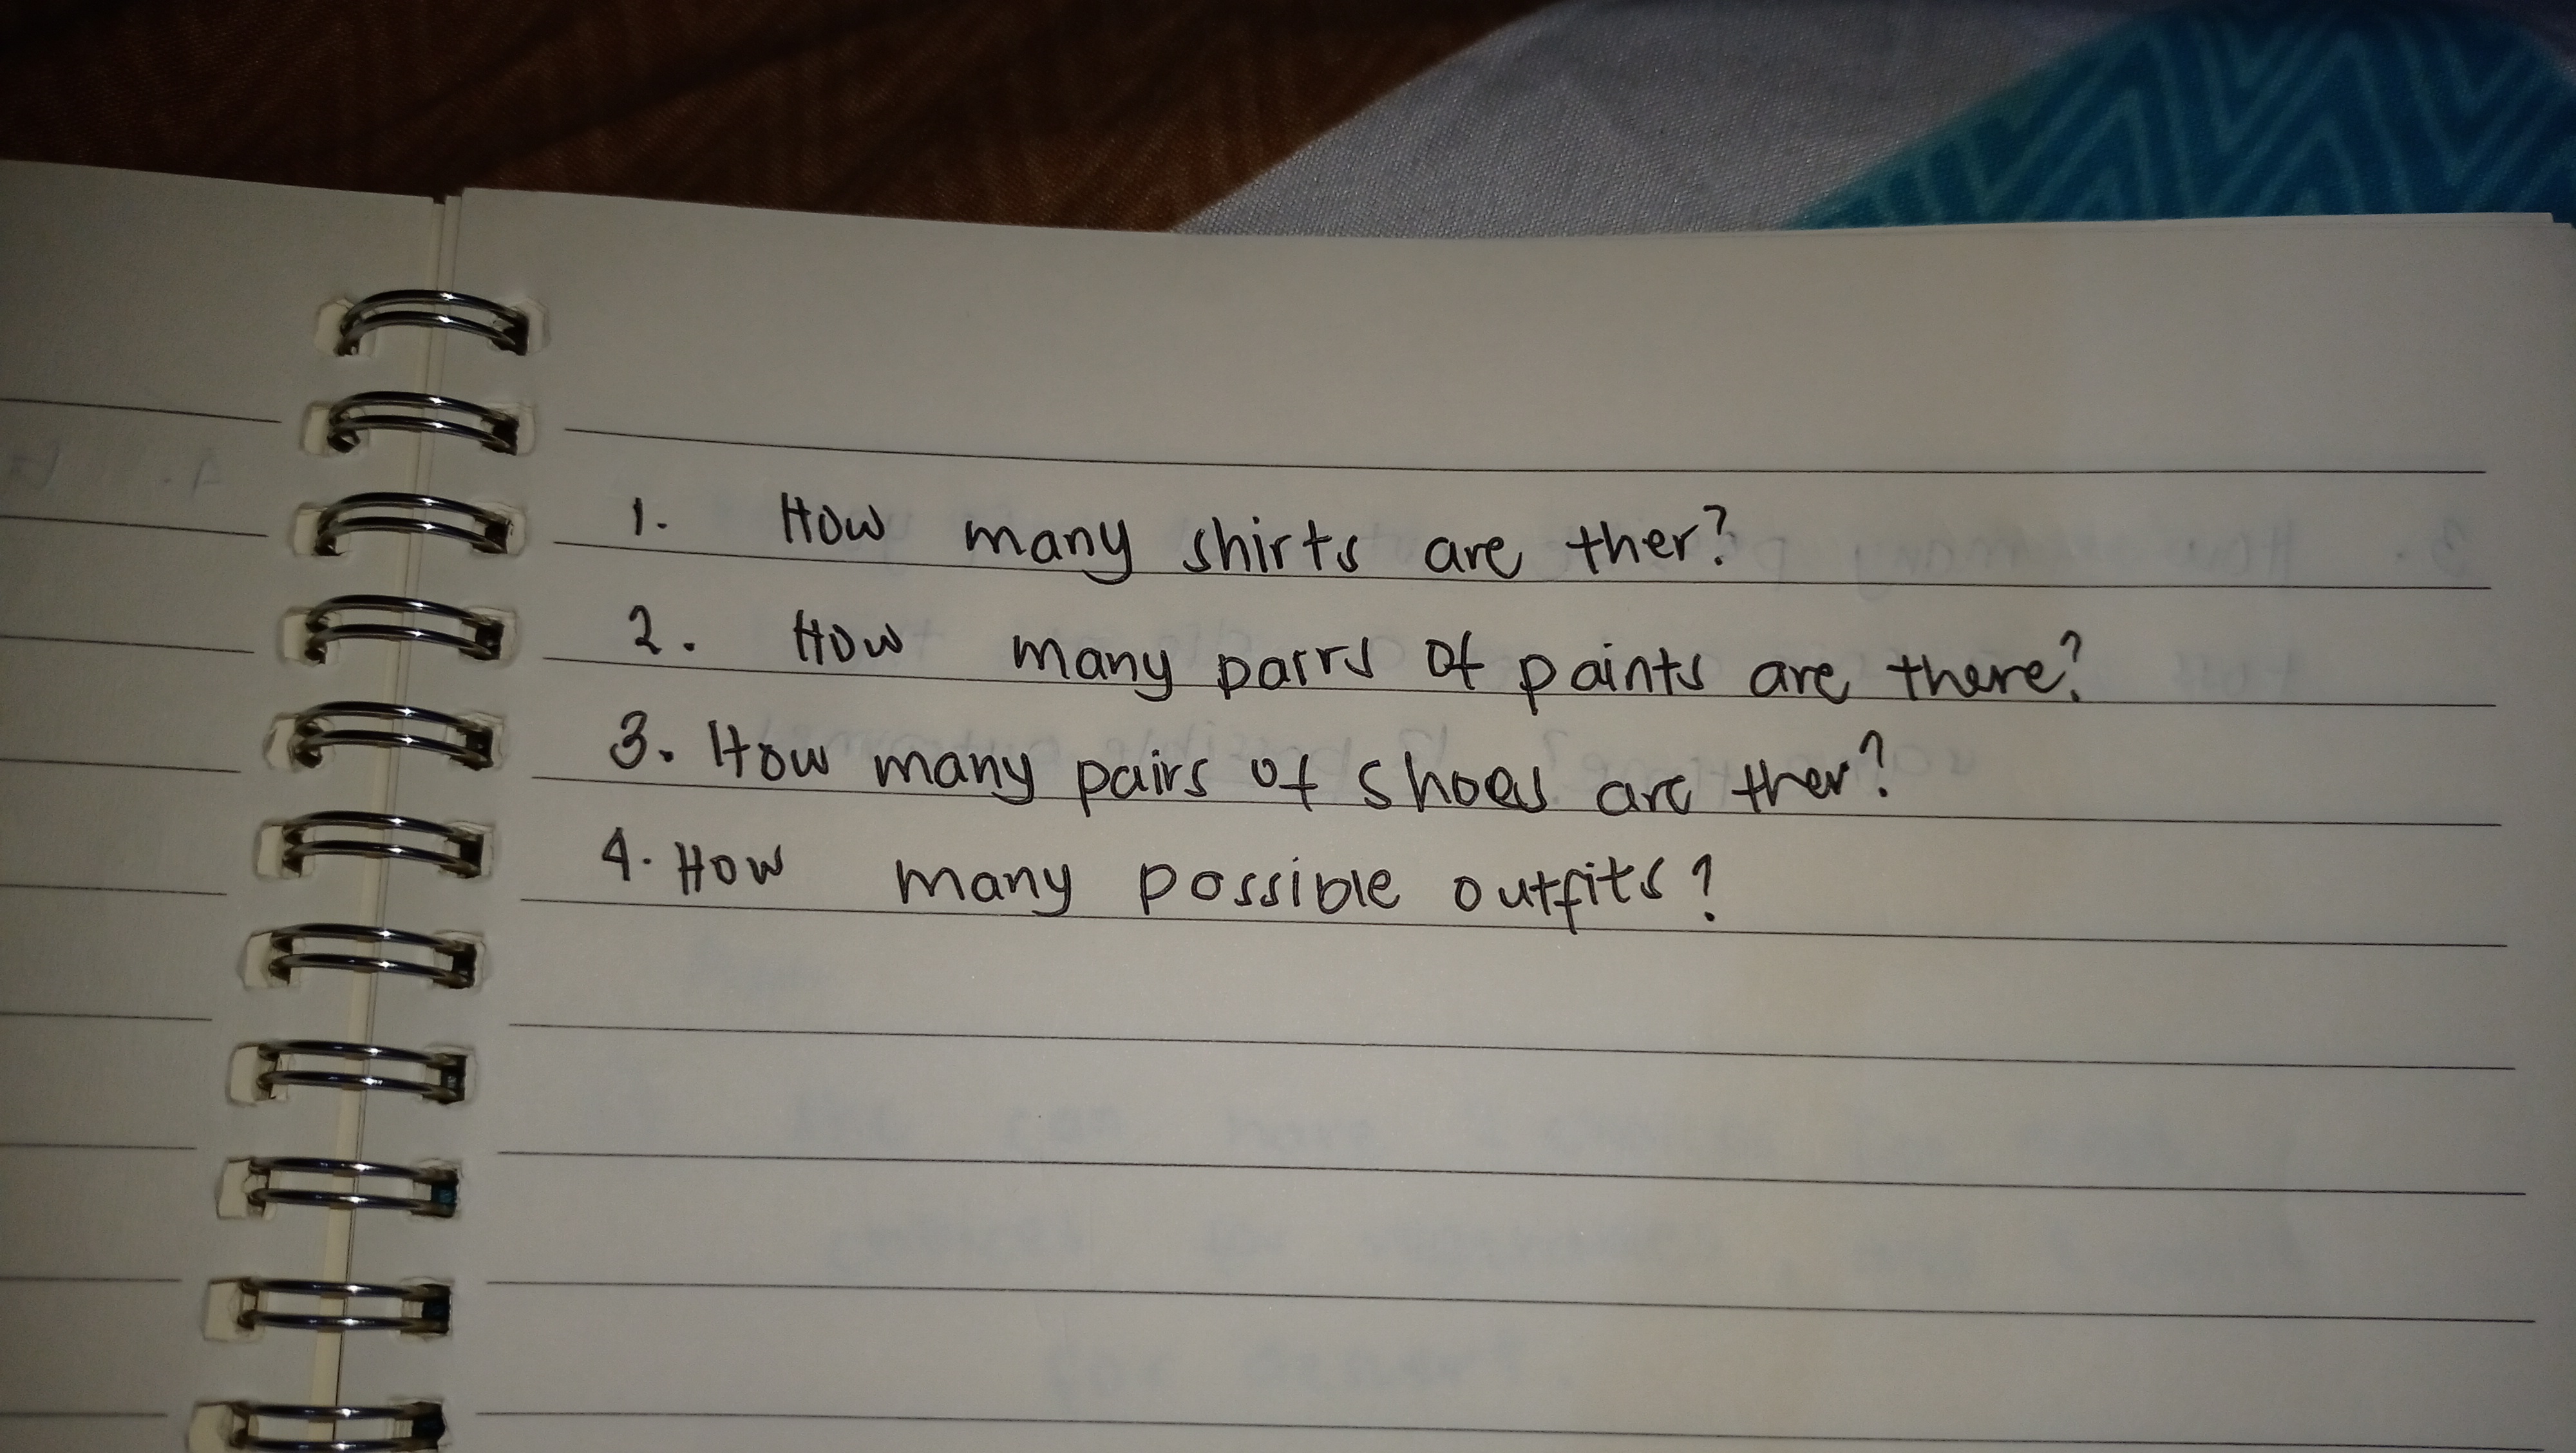 1. How many shirts are ther?
2. How many pairs of paints are there?
3. How many pairs of shoes are ther?
4. How many possible outfits?